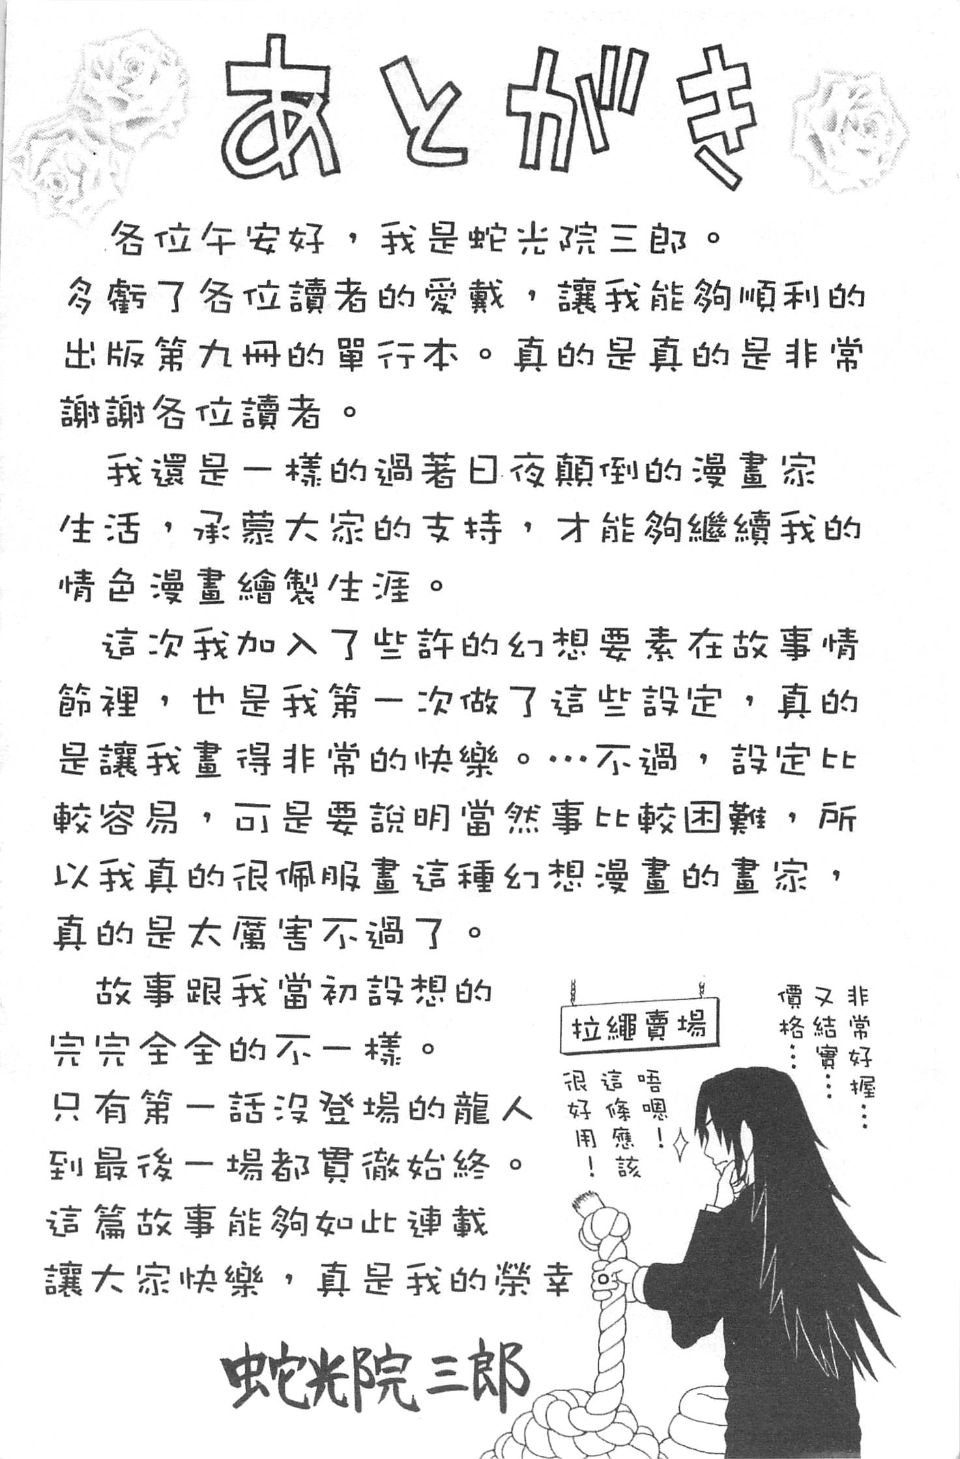 あとがき
各位午安好，我是蛇光院三郎。
多虧了各位讀者的愛戴，讓我能夠順利的
出版第九冊的單行本。真的是真的是非常
謝謝各位讀者。
我還是一樣的過著日夜顛倒的漫畫家
生活，承蒙大家的支持，才能夠繼續我的
情色漫畫繪製生涯。
這次我加入了些許的幻想要素在故事情
節裡，也是我第一次做了這些設定，真的
是讓我畫得非常的快樂。…不過，設定比
較容易，可是要說明當然事比較困難，所
以我真的很佩服畫這種幻想漫畫的畫家，
真的是太厲害不過了。
故事跟我當初設想的
完完全全的不一樣。
只有第一話沒登場的龍人
到最後一場都貫徹始終。
這篇故事能夠如此連載
讓大家快樂，真是我的榮幸
蛇光院三郎
拉繩賣場
非常好握…
又結實…
價格…
唔嗯！
這條應該
很好用！